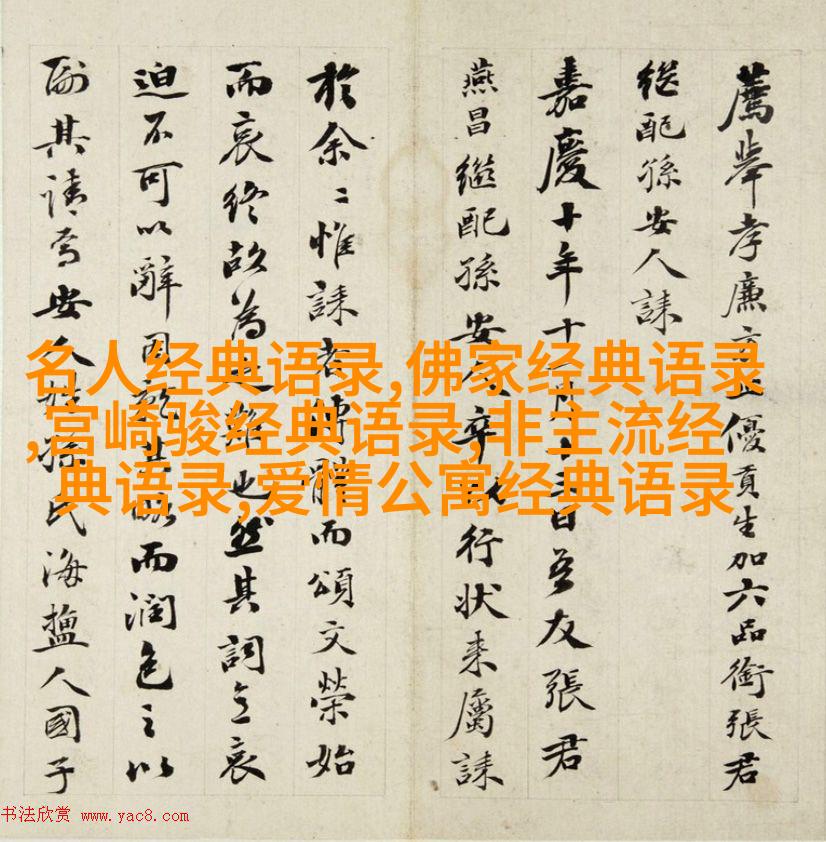 薦舉孝廉方正優貢生加六品銜張君
継配孫安人誄
嘉慶十年十月日吾友張君
燕昌繼配孫安人卒行状来屬誄
於余〻惟誄者體而頌文榮始
而哀終故為也然其詞哀
迫不可以辭因其而潤色之以
副其請安人姓孫氏海鹽人國子
名人经典语录,佛家经典语录
,宫崎骏经典语录,非主流经
典语录,爱情公寓经典语录
书法欣赏 www.yac8.com